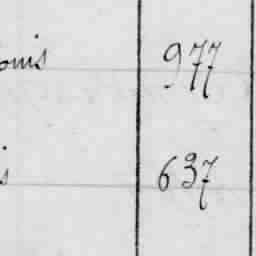 ouis 977
is 637